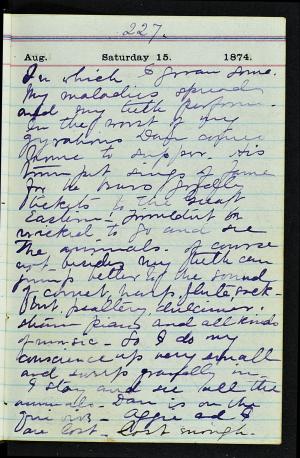 227.
Aug. Saturday 15. 1874.
In which I groan some.
My maladies spreads
and my teeth perform.
In the worst of my
gyrations Dave comes
home to supper. His
front sings of fame
for he buys
tickets to the Great
Eastern! Wouldn't be
wicked to go and see
the animals. Of course
not - besides my teeth can
jump better to the sound
of cornet, harp, flute, sack-
but, psaltery, dulcimer,
steam piano and all kinds
of music - So I do my
conscience up very small
and sweep grandly in -
I stay and see all the
animals - Dave is on the
- Aggie and I
are lost - lost enough.